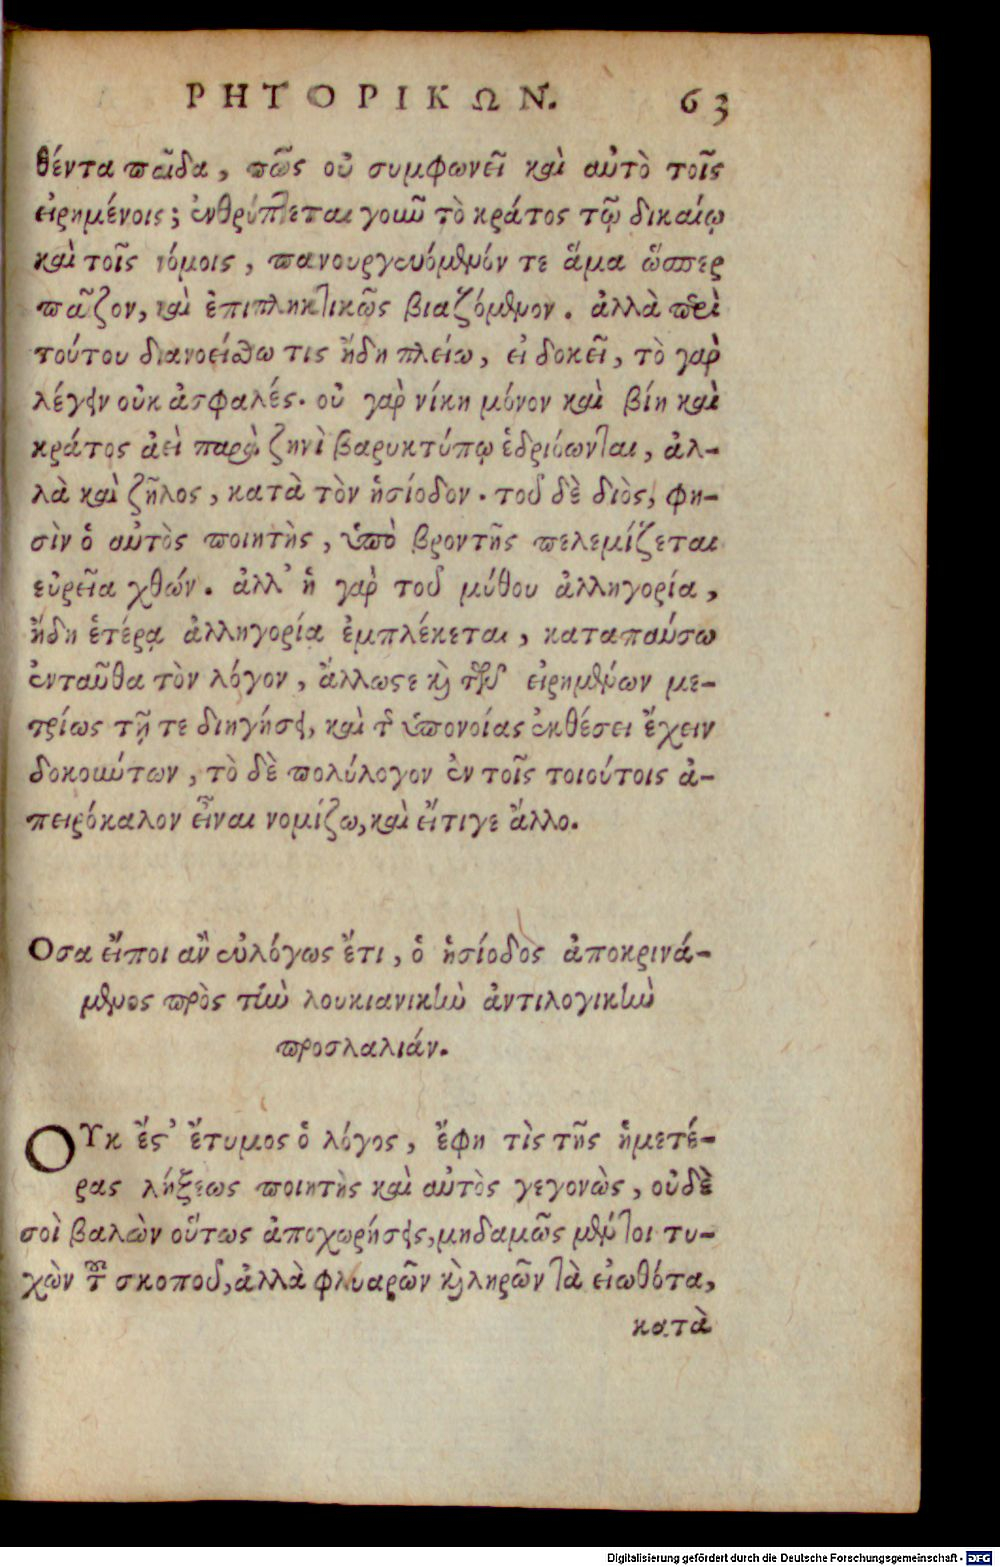 ΡΗΤΟΡΙΚΩΝ. 63
θέντα παῖδα, πῶς οὐ συμφωνεῖ καὶ αὐτὸ τοῖς
εἰρημένοις; ἐνθρύπτεται γοιῦ τὸ κράτος τῷ δικαίῳ
καὶ τοῖς νόμοις, πανουργευόμενόν τε ἅμα ὥσπερ
παῖζον, καὶ ἐπιπληκτικῶς βιαζόμενον. ἀλλὰ περὶ
τούτου διανοείσθω τις ἤδη πλείω, εἰ δοκεῖ, τὸ γὰρ
λέγειν οὐκ ἀσφαλές. οὐ γὰρ νίκη μόνον καὶ βίη καὶ
κράτος ἀεὶ παρὰ ζηνὶ βαρυκτύπῳ ἑδριόωνται, ἀλ-
λὰ καὶ ζῆλος, κατὰ τὸν ἡσίοδον. τοῦ δὲ διὸς, φη-
σὶν ὁ αὐτὸς ποιητὴς, ὑπὸ βροντῆς πελεμίζεται
εὐρεῖα χθών. ἀλλ' ἡ γὰρ τοῦ μύθου ἀλληγορία,
ἤδη ἑτέρᾳ ἀλληγορίᾳ ἐμπλέκεται, καταπαύσω
ἐνταῦθα τὸν λόγον, ἄλλωστε καὶ τῶν εἰρημένων με-
τρίως τῇ τε διηγήσει, καὶ τῇ ὑπονοίας ἐκθέσει ἔχειν
δοκούντων, τὸ δὲ πολύλογον ἐν τοῖς τοιούτοις ἀ-
πειρόκαλον εἶναι νομίζω, καὶ εἴτιγε ἄλλο.
Οσα εἴποι ἂν εὐλόγως ἔτι, ὁ ἡσίοδος ἀποκρινά-
μενος πρὸς τὴν λουκιανικὴν ἀντιλογικὴν
προσλαλιάν.
ΟΥκ ἔστ' ἔτυμος ὁ λόγος, ἔφη τὶς τῆς ἡμετέ-
ρας λήξεως ποιητὴς καὶ αὐτὸς γεγονὼς, οὐδὲ
σοὶ βαλὼν οὕτως ἀποχωρήσεις, μηδαμῶς μέντοι τυ-
χὼν τοῦ σκοποῦ, ἀλλὰ φλυαρῶν καὶ ληρῶν τὰ εἰωθότα,
κατὰ
Digitalisierung gefördert durch die Deutsche Forschungsgemeinschaft - DFG